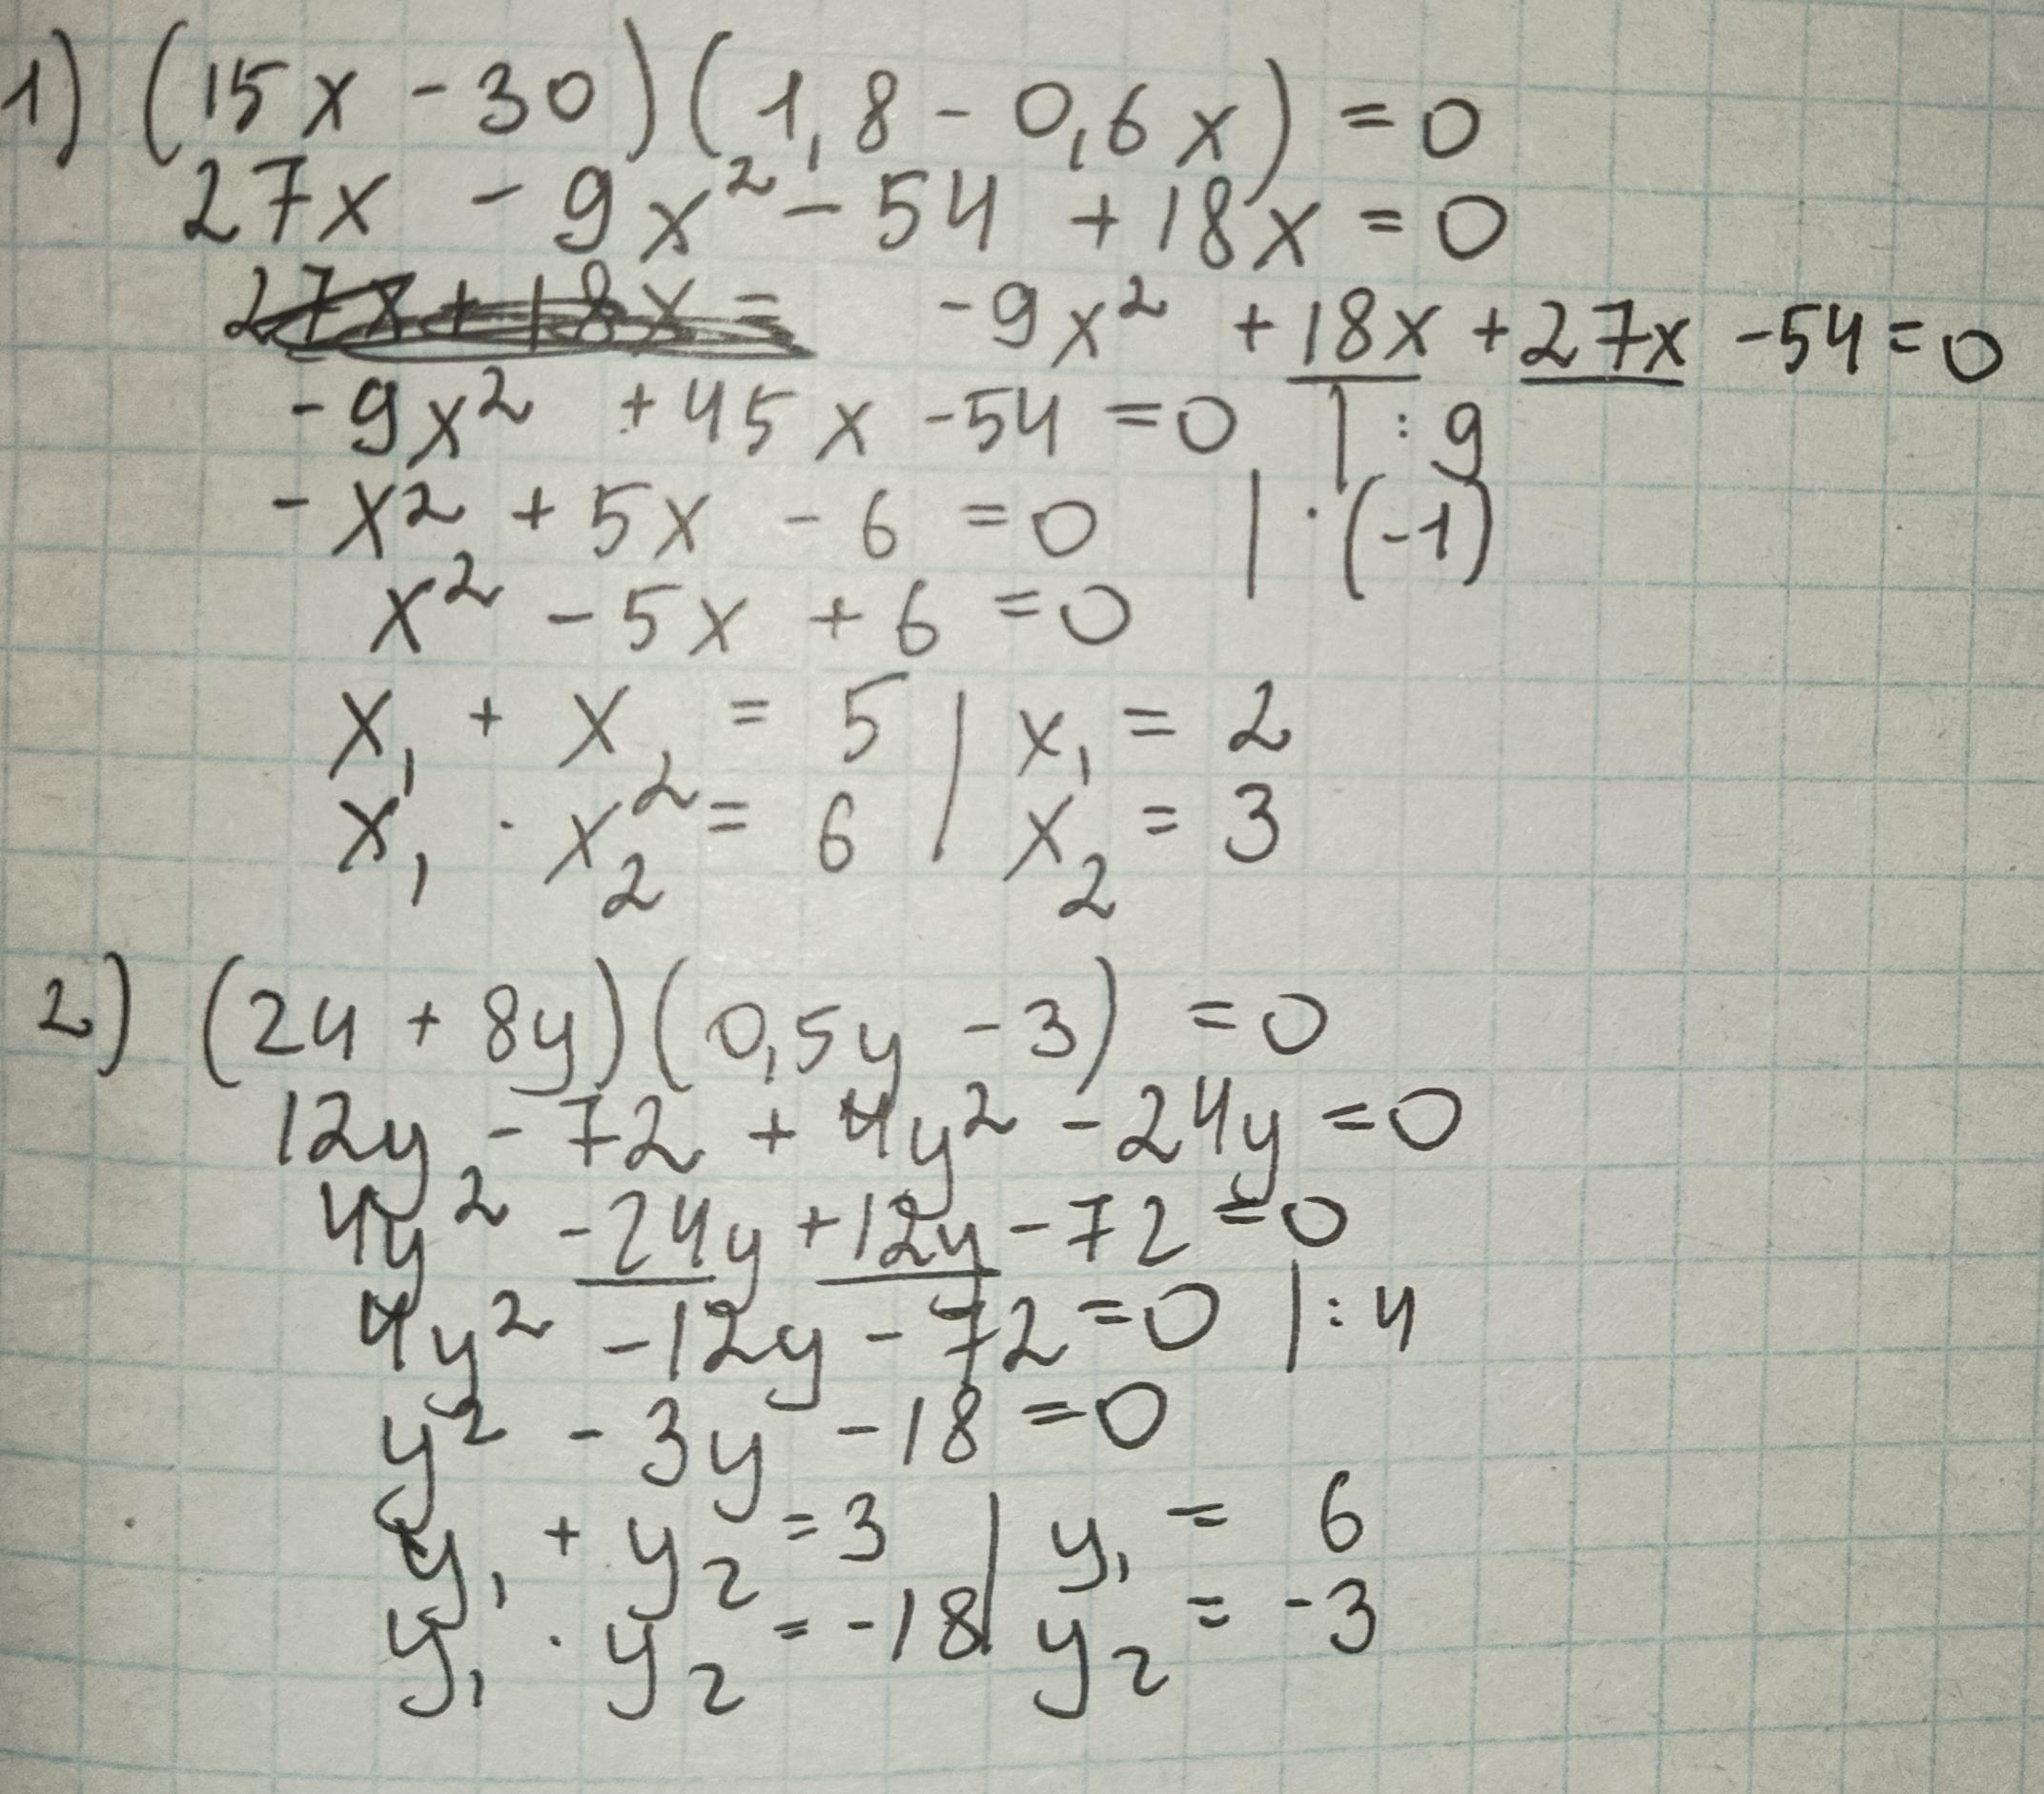 1) (15x - 30)(1,8 - 0,6x) = 0
27x - 9x² - 54 + 18x = 0
27x + 18x = -9x² + 18x + 27x - 54 = 0
-9x² + 45x - 54 = 0 | : 9
-x² + 5x - 6 = 0 | · (-1)
x² - 5x + 6 = 0
x₁ + x₂ = 5 | x₁ = 2
x₁ · x₂ = 6 | x₂ = 3
2) (24 + 8y)(0,5y - 3) = 0
12y - 72 + 4y² - 24y = 0
4y² - 24y + 12y - 72 = 0
4y² - 12y - 72 = 0 | : 4
y² - 3y - 18 = 0
y₁ + y₂ = 3 | y₁ = 6
y₁ · y₂ = -18 | y₂ = -3